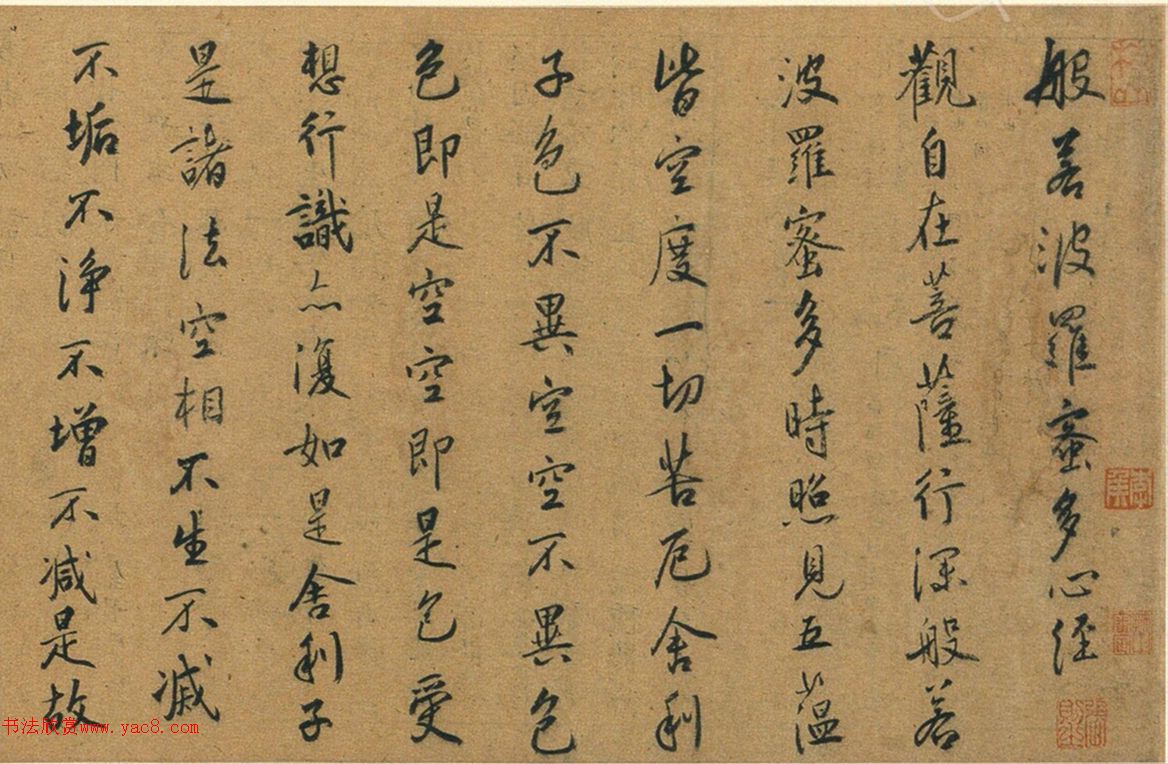 般若波羅蜜多心経
觀自在菩薩行深般若
波羅蜜多時照見五蕴
皆空度一切苦厄舍利
子色不異空空不異色
色即是空空即是色受
想行識亦復如是舍利子
是諸法空相不生不滅
不垢不浄不增不减是故
书法欣赏www.yac8.com